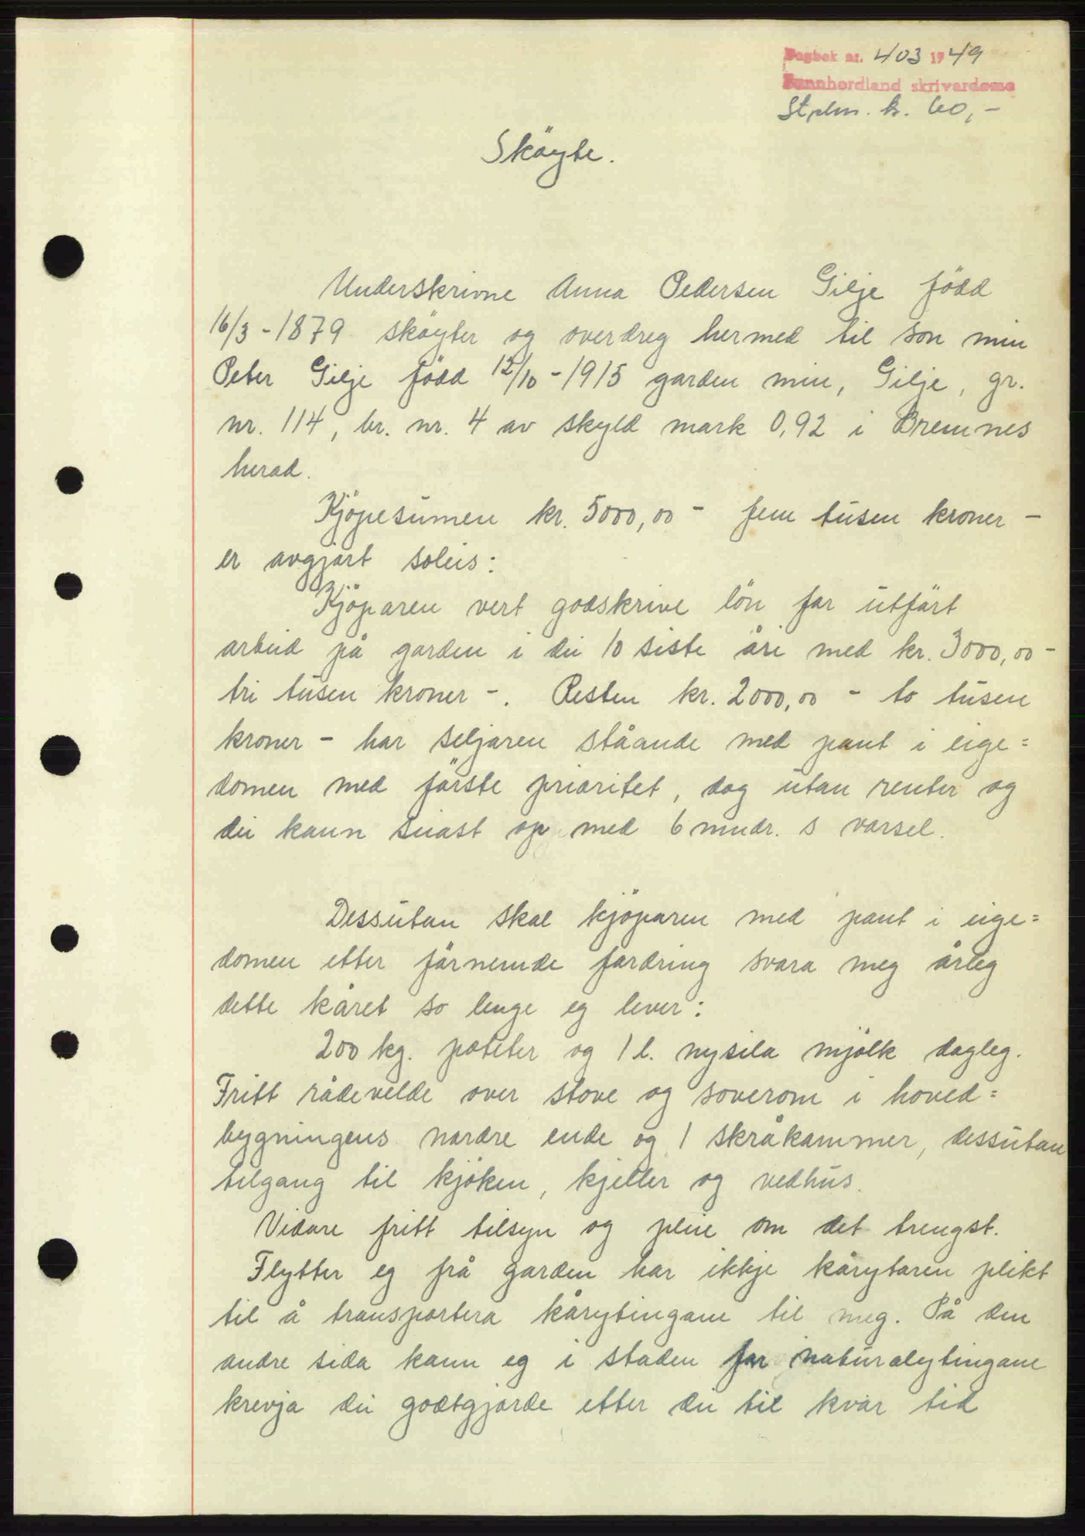 Dagbok nr. 403 1949
Sunnhordland skrivardøme
Stplm. kr. 60,-
Skøyte.
Underskrivne Anna Pedersen Gilje fødd
16/3-1879 skøyter og overdreg hermed til son min
Peter Gilje fødd 12/10-1915 garden min, Gilje, gr.
nr. 114, br. nr. 4 av skyld mark 0,92 i Bremnes
herad.
Kjøpesumen kr. 5000,00 - fem tusen kroner -
er avgjort soleis:
Kjøparen vert godskrive løn for utført
arbeid på garden i dei 10 siste åri med kr. 3000,00 -
tri tusen kroner -. Resten kr. 2000,00 - to tusen
kroner - har seljaren ståande med pant i eige=
domen med første prioritet, dog utan renter og
dei kann seiast op med 6 mndr. s varsel.
Dessutan skal kjøparen med pant i eige=
domen etter førnemde fordring svara meg årleg
dette kåret so lenge eg lever:
200 kg. poteter og 1 l. nysila mjølk dagleg.
Fritt rådevelde over stove og soverom i hoved=
bygningens nordre ende og 1 skråkammer, dessutan
tilgang til kjøken, kjeller og vedhus.
Vidare fritt tilsyn og pleie om det trengst.
Flytter eg frå garden har ikkje kårytaren plikt
til å transportera kårytingane til meg. På den
andre sida kann eg i staden for naturalytingane
krevja dei godtgjorde etter dei til kvar tid